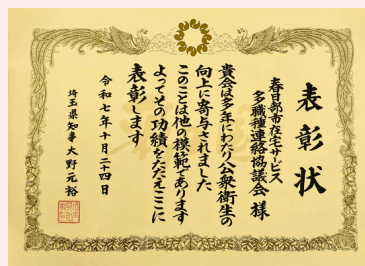 表彰状
春日部市在宅サービス
多職種連絡協議会 様
貴会は多年にわたり公衆衛生の
向上に寄与されました
このことは他の模範であります
よってその功績をたたえここに
表彰します
令和七年十月二十四日
埼玉県知事 大野元裕